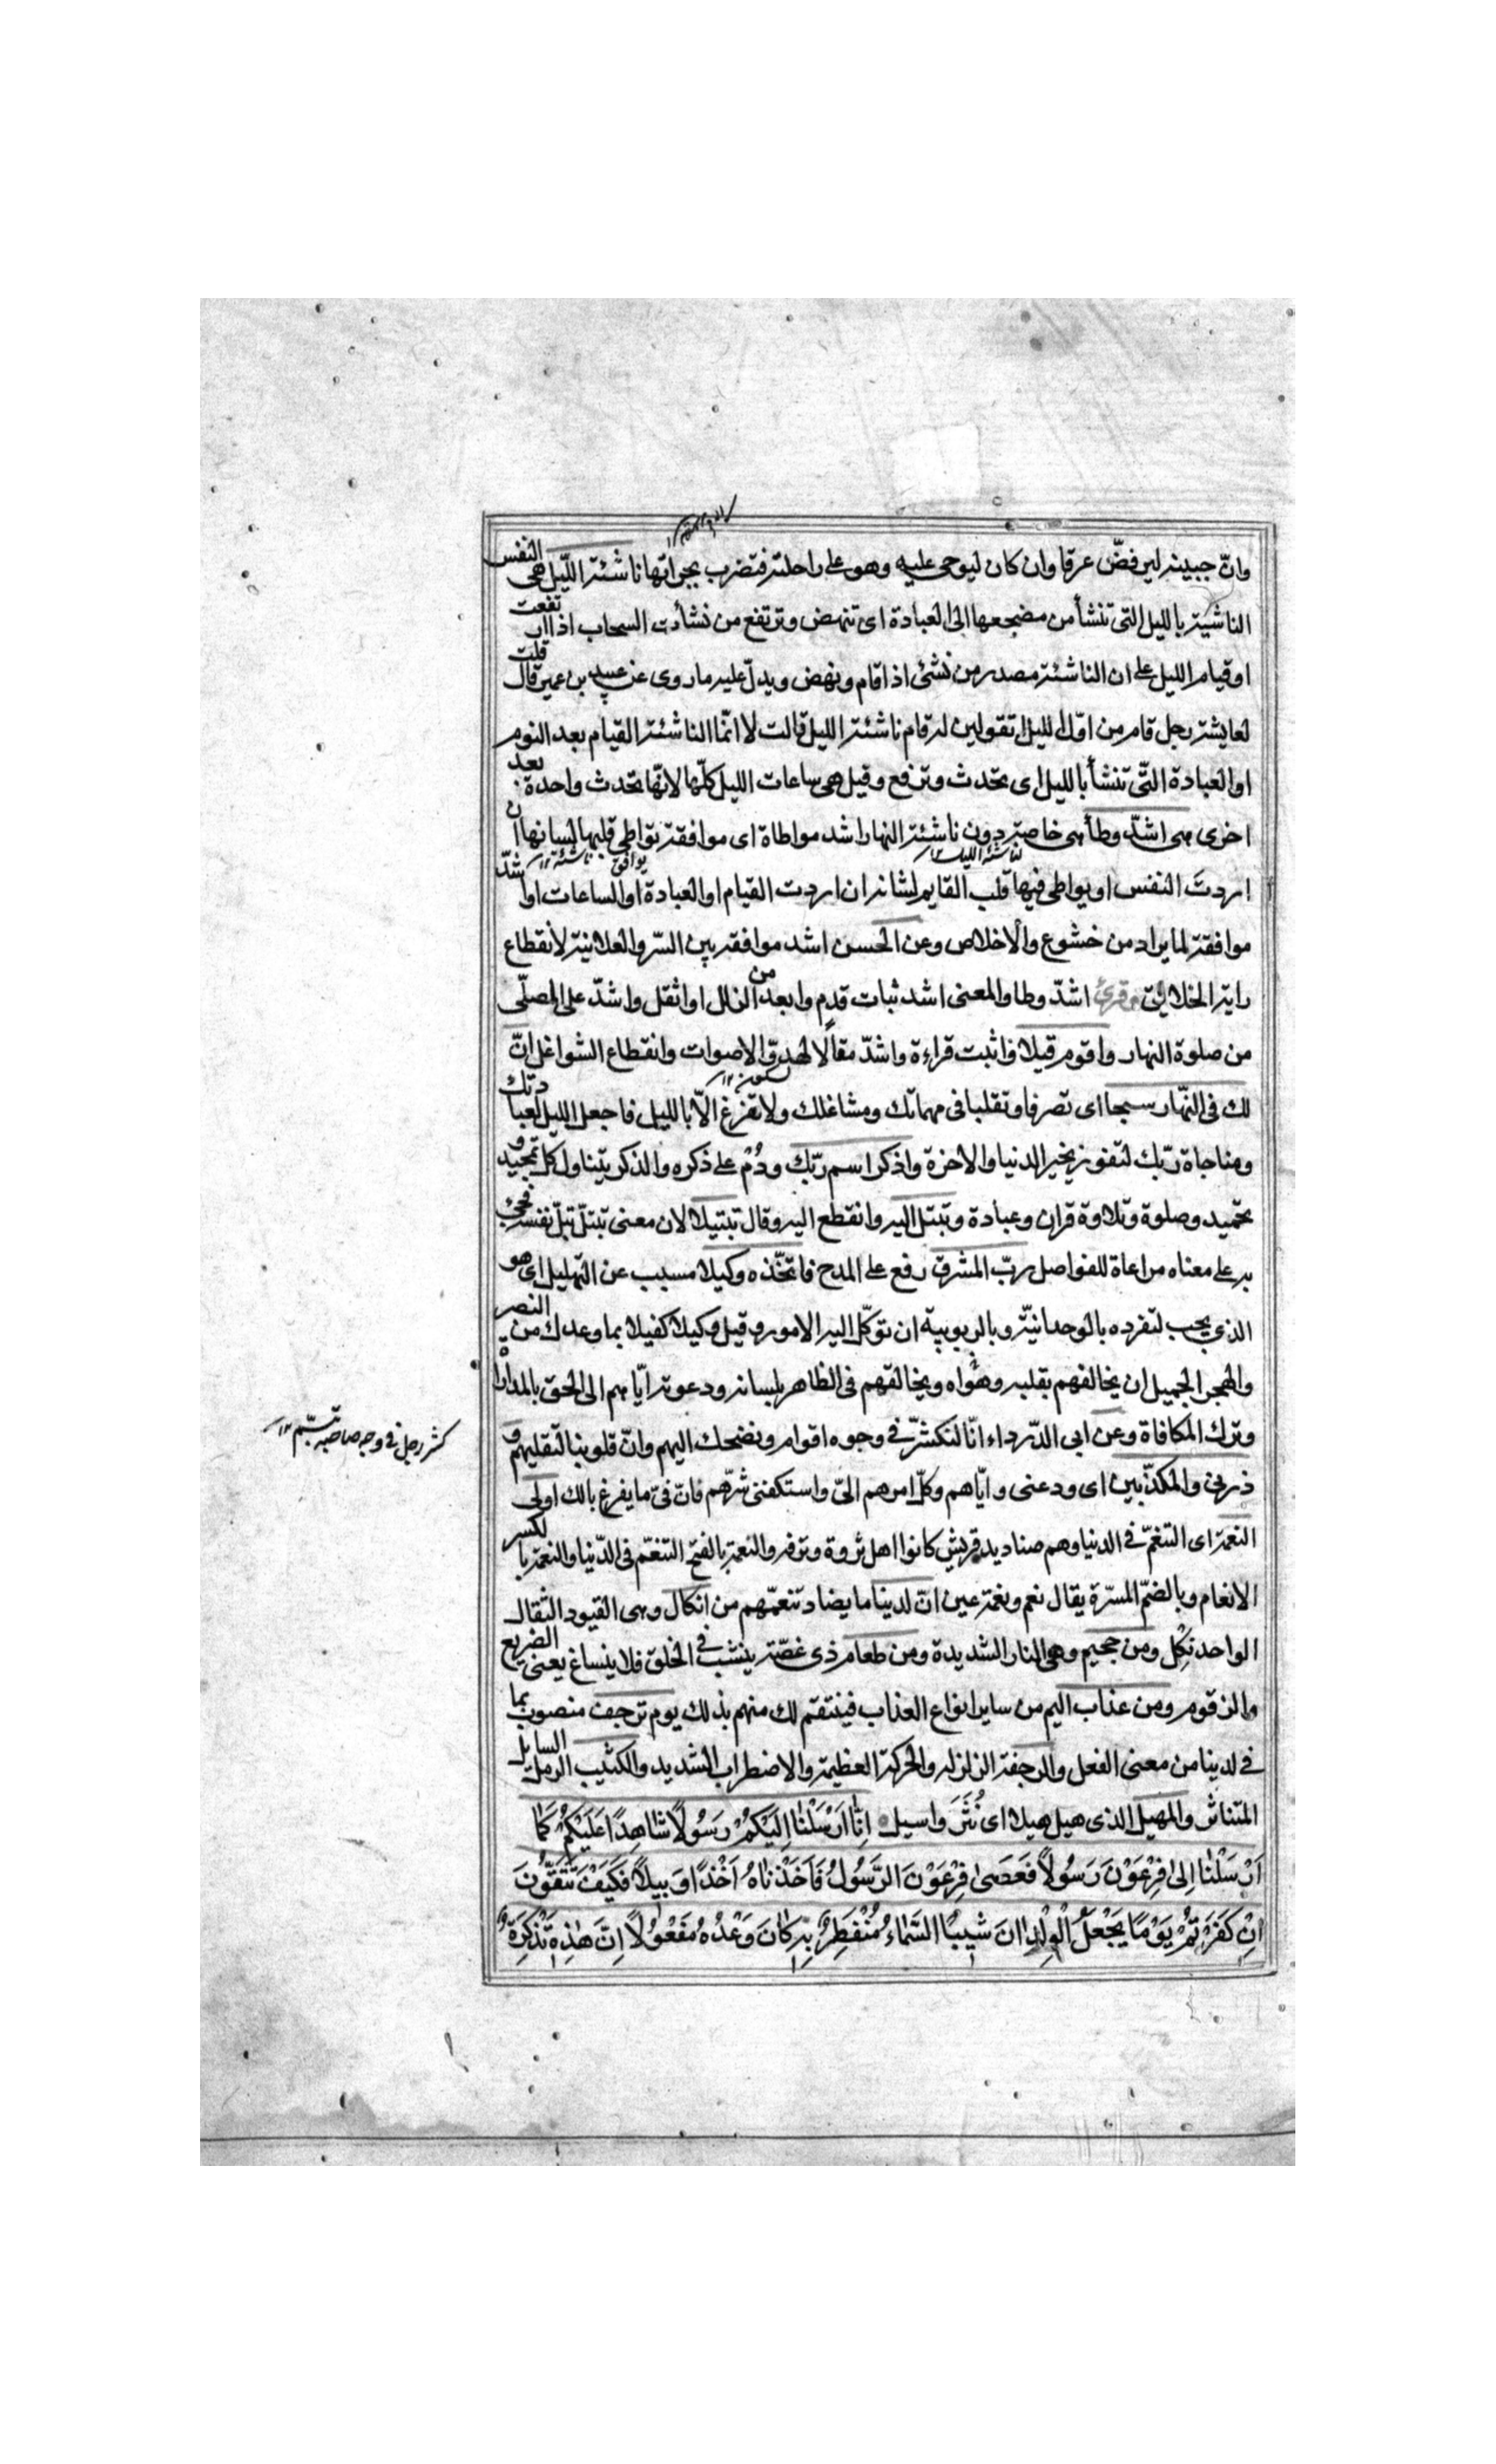 وانّ جبينه ليرفضّ عرقا وان كان ليوحى عليه وهو على راحلته فتضرب بجرانها ناشئة اللّيل هى النفس
الناشية بالليل التى تنشأ من مضجعها الى العبادة اى تنهض وترتفع من نشأت السحاب اذا ارتفعت
او قيام الليل على ان الناشئة مصدر من نشئ اذا قام ونهض ويدلّ عليه ما روى عن عبيد بن عمير قال قلت
لعايشة رجل قام من اوّل الليل اتقولين له قام ناشئة الليل قالت لا انّما الناشئة القيام بعد النوم
او العبادة التّى تنشأ بالليل اى تحدث وترفع وقيل هى ساعات الليل كلّها لانّها تحدث واحدة بعد
اخرى هى اشدّ وطأ هى خاصة دون ناشئة النهار اشد مواطاة اى موافقة تواطى قلبها لسانها ان
اردتَ النفس او يواطى فيها قلب القايم لسانه ان اردت القيام او العبادة او الساعات او اشدّ
موافقة لما يراد من خشوع والاخلاص وعن الحسن اشد موافقة بين السرّ والعلانية لانقطاع
راية الخلايق وقرئ اشدّ وطا والمعنى اشد ثبات قدم وابعد من الزلل او اثقل واشدّ على المصلّى
من صلوة النهار واقوم قيلا واثبت قراءة واشدّ مقالًا لهدوّ الاصوات وانقطاع الشواغل انّ
لك فى النّهار سبحا اى تصرفا وتقلبا فى مهماتك ومشاغلك ولا تفرغ الّا بالليل فاجعل الليل لعبادتك
ومناجاة ربّك لتفوز بخير الدنيا والاخرة واذكر اسم ربّك ودُمْ على ذكره والذكر يتناول كل تمجيد و
تحميد وصلوة وتلاوة قران وعبادة وتبتل اليه وانقطع اليه وقال تبتيلا لان معنى تبتلّ بتلّ نفسه فجئ
به على معناه مراعاة للفواصل ربّ المشرق رفع على المدح فاتخّذه وكيلا مسبب عن التهليل اى هو
الذى يجب لتفرده بالوحدانيّة وبالربوبية ان توكّل اليه الامور وقيل وكيلا كفيلا بما وعدك من النصر
والهجر الجميل ان يخالفهم بقلبه وهواه ويخالقهم فى الظاهر بلسانه ودعوته ايّاهم الى الحق بالمداراة
وترك المكافاة وعن ابى الدّرداء انّا لنكشرّ فى وجوه اقوام ونضحك اليهم وانّ قلوبنا لتقليهم و
ذرنى والمكذّبين اى ودعنى وايّاهم وكلّ امرهم الىّ واستكفنى شرّهم فانّ فىّ ما يفرغ بالك اولى
النعمة اى التنعّم فى الدنيا وهم صناديد قريش كانوا اهل ثروة وترفه والنعمة بالفتح التنعّم فى الدّنيا والنعمة بالكسر
الانعام وبالضمّ المسرّة يقال نعم ونعمة عين انّ لدينا ما يضاد تنعمّهم من انكال وهى القيود الثقال
الواحد نِكْل ومن جحيم وهى النار الشديدة ومن طعام ذى غصّة ينشب فى الحلق فلا ينساغ يعنى الضريع
والزقوم ومن عذاب اليم من ساير انواع العذاب فينتقم لك منهم بذلك يوم ترجف منصوب بما
فى لدينا من معنى الفعل والرجفة الزلزله والحركة العظيمة والاضطراب الشديد والكثيب الرمل السايل
المتناثر والمهيل الذى هيل هيلا اى نُثَرَ واسيل اِنّا اَرْسَلْنٰا اِلَيْكُمْ رَسُولًا شٰاهِدًا عَلَيْكُمْ كَمٰا
اَرْسَلْنٰا اِلىٰ فِرْعَوْنَ رَسُولًا فَعَصىٰ فِرْعَوْنَ الرَّسُولُ فَاَخَذْنٰاهُ اَخْذًا وَبيلًا فَكَيْفَ تَتَّقُونَ
اِنْ كَفَرْتُمْ يَوْمًا يَجْعَلُ الْوِلْدٰانَ شيبًا السَّمٰاءُ مُنْفَطِرٌ بِهِ كٰانَ وَعْدُهُ مَفْعُولًا اِنَّ هٰذِهِ تَذْكِرَةٌ
لناشئة الليل ١٢
يوافق
ناشئة ١٢
سكون ١٢
كشر رجل فى وجه صاحبه تبسّم ١٢